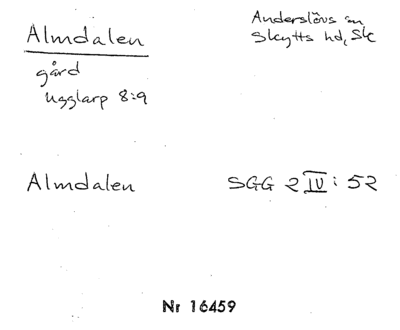 Almdalen
Anderslövs sn
Skytts hd, Sk
gård
Ugglarp 8:9
Almdalen
SGG 2 IV: 52
Nr 16459